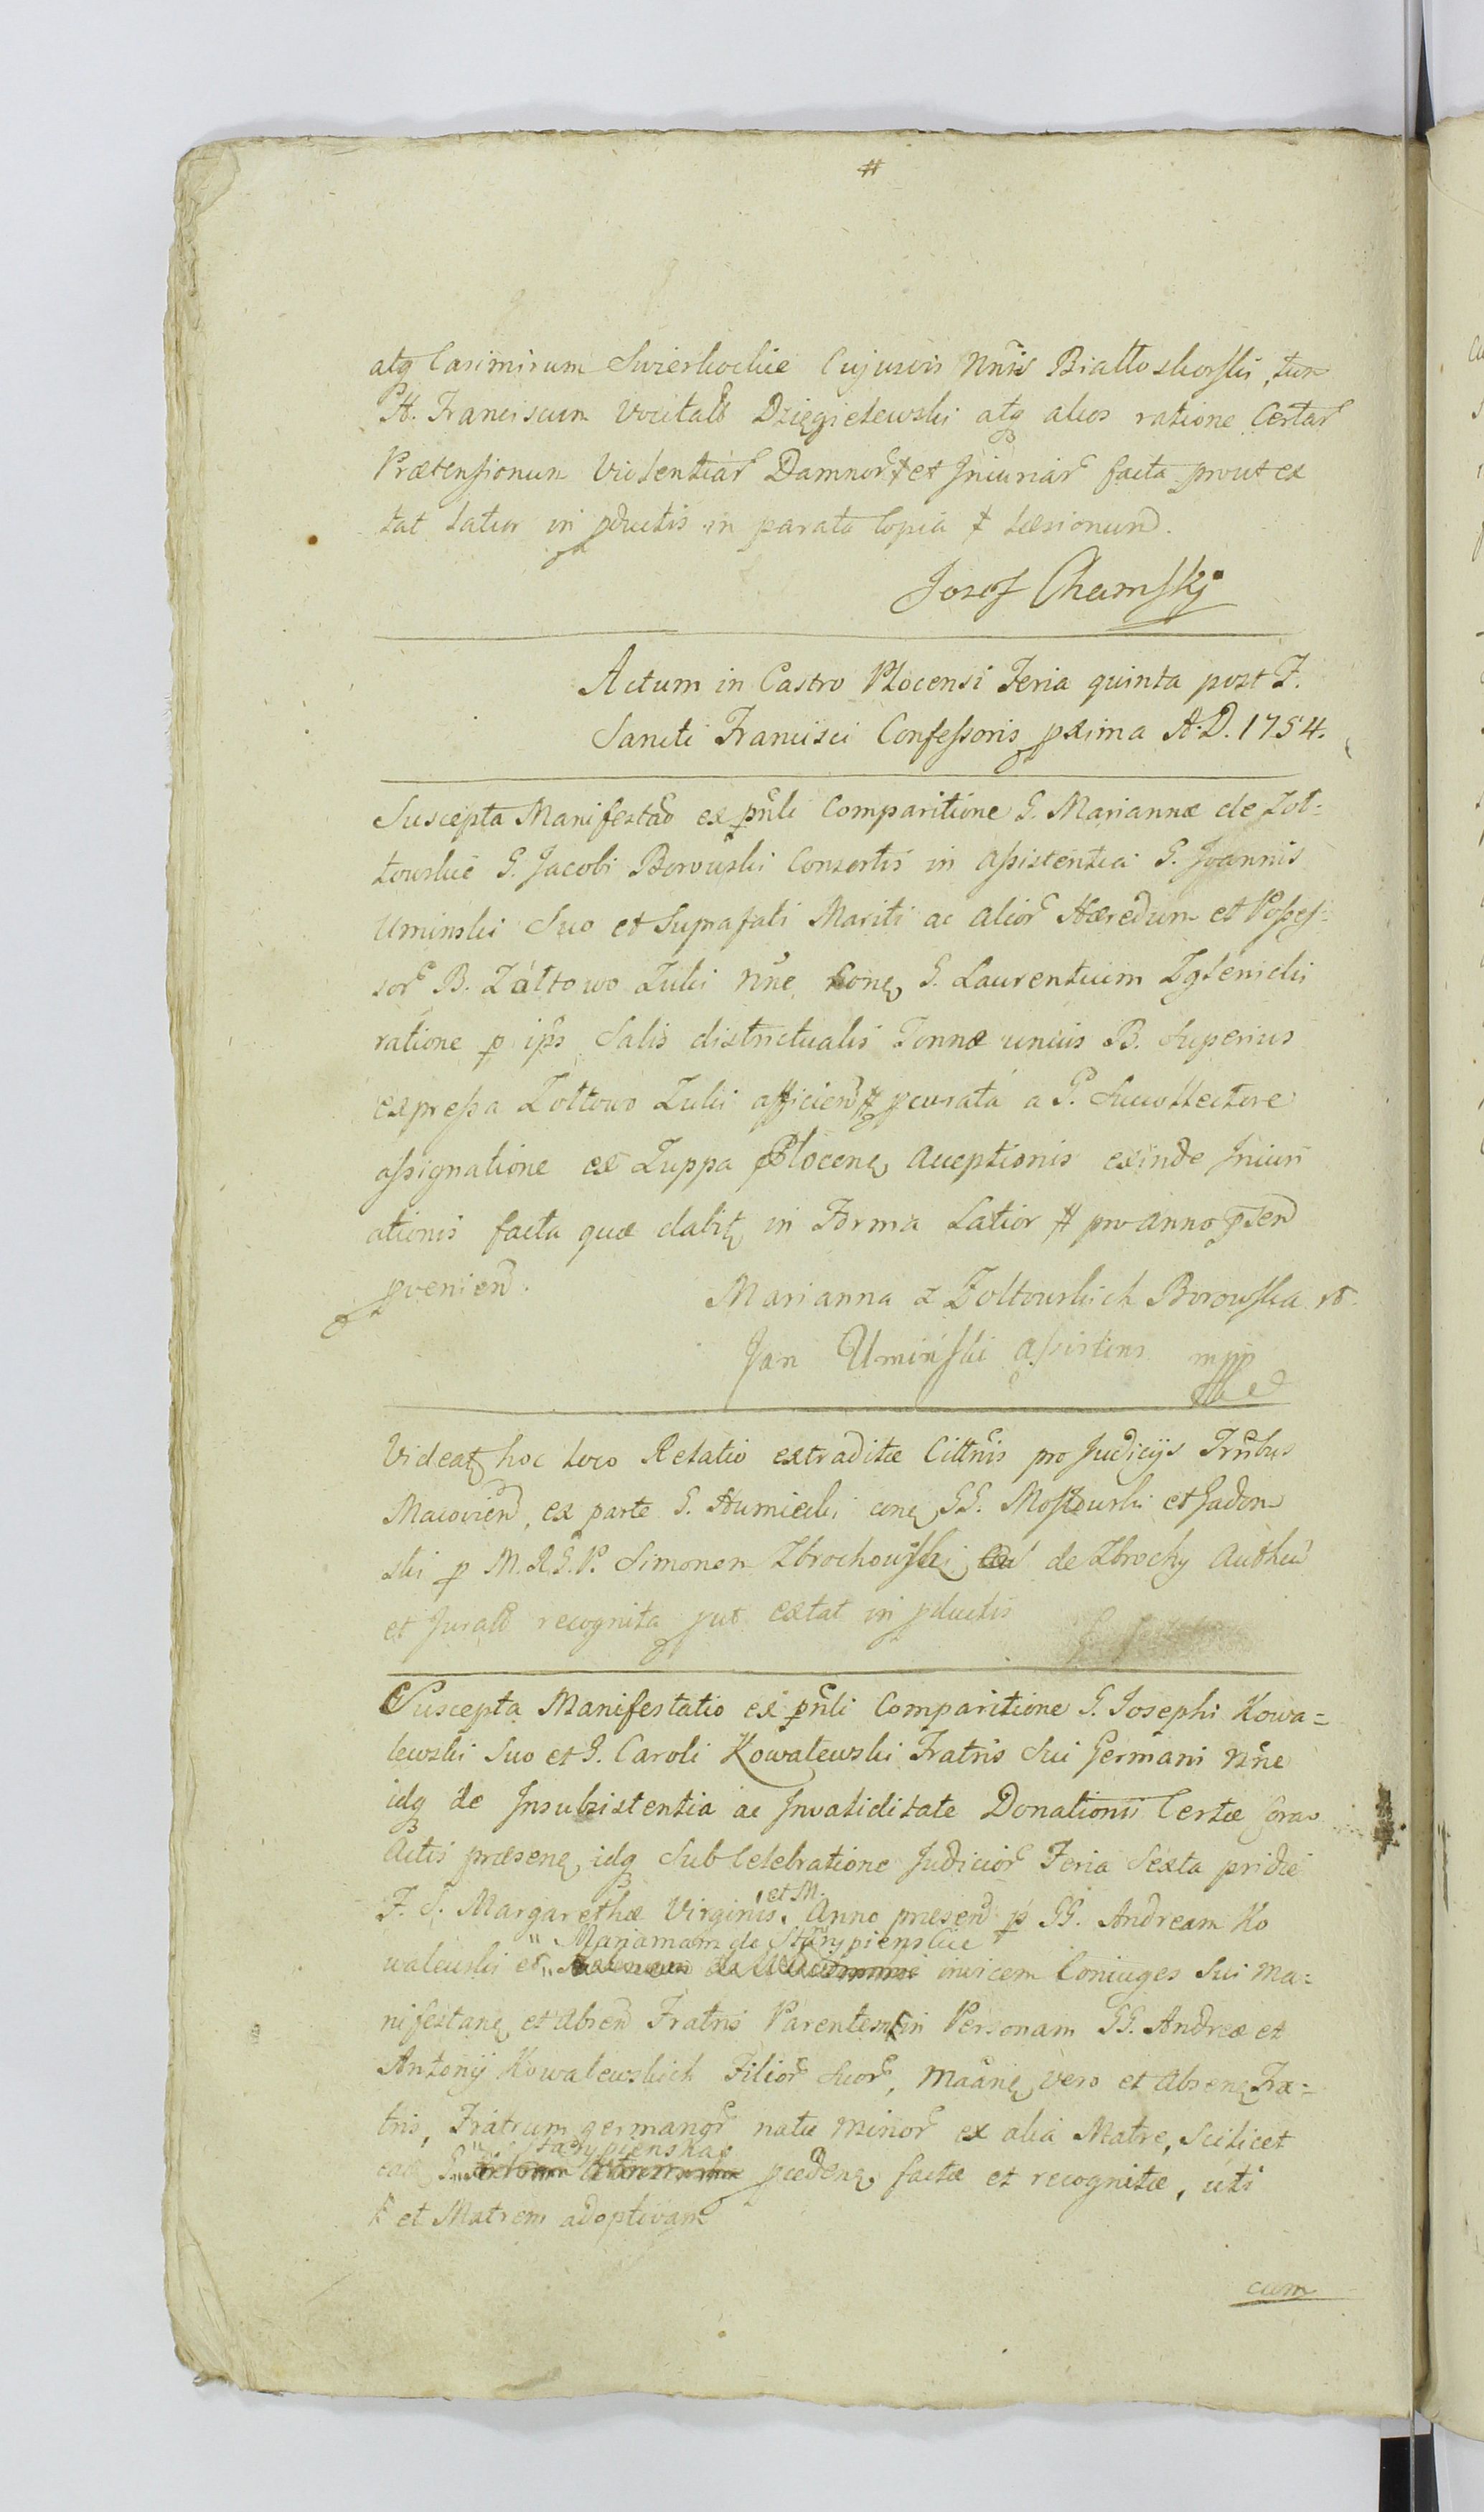 #
atq Casimirum Swierkockie Cujusvis Nnis Białłoskorski, tum
H. Franciscum vocitatt Dzięgielewski atq alios ratione Certar
Prætensionum Violentiar Damnor et Iniuriar facta prout ex
tat latior in pductis in parata Copia ‡ læsionum.
Jozef Chamski
Actum in Castro Plocensi Feria quinta post F.
Sancti Francisci Confessoris pxima A.D. 1754.
Suscepta Manifestao ex pnli Comparitione G. Mariannæ de Żoł=
towskie G. Jacobi Borowski Consortis in assistentia G. Joannis
Uminski Suo et Suprafati Mariti ac alior Hæredum et Posses=
sor B. Żałtowo Zuki Nne conq G. Laurentium Zglenicki
ratione p ips Salis districtualis Tonnæ unius B. Superius
expressa Żołtowo Zuki afficien ‡ pcurata a G. Succollectore
assignatione ex Zuppa Plocenq acceptionis exinde Iniuri
ationis facta quæ dabitq in Forma Latior # pro anno psen
pvenien.
Marianna z Żołtowskich Borowska
Jan Uminski assistens mpp
Videatq hoc loco Relatio extraditæ Cittnis pro Judicijs Trnbus
Macovien, ex parte G. Humiecki conq GG. Mostowski et Gadom
ski p M.R.G.P. Simonem Zbrochowski de Zbrochy Authen
et Juratt recognita put extat in pductis
Suscepta Manifestatio ex pnli Comparitione G. Josephi Kowa=
lewski Suo et G. Caroli Kowalewski Fratris Sui Germani Nne
idq de Insubsistentia ac Invaliditate Donationis Certæ Cora
Actis præsenq idq Sub Celebratione Judicior Feria Sexta pridie
F. S. Margarethæ Virginis et M. Anno præsen p GG. Andream Ko
walewski et Mariannam de Starypienskie invicem Coniuges Sui Ma=
nifestanq et absen Fratris Parentem in Personam GG. Andreæ et
Antonij Kowalewskich Filior Suor, Maanq vero et absenq Fra=
tris, Fratrum germanor natu minor ex alia Matre, Scilicet
ead G. Starypienska pcedenq factæ et recognitæ, uti
‡ et Matrem adoptivam
cum